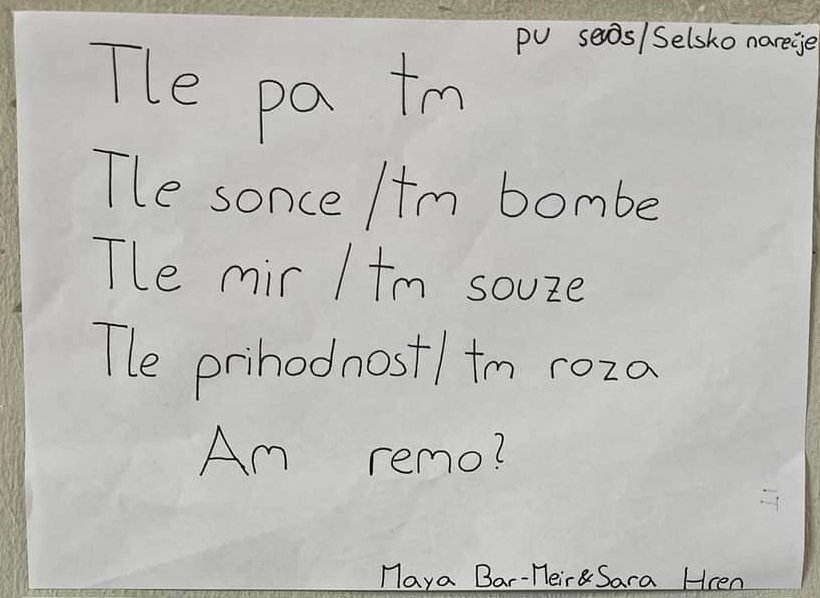 pu seøs/Selsko narečje
Tle pa tm
Tle sonce /tm bombe
Tle mir / tm souze
Tle prihodnost/ tm roza
Am remo?
Maya Bar-Meir & Sara Hren